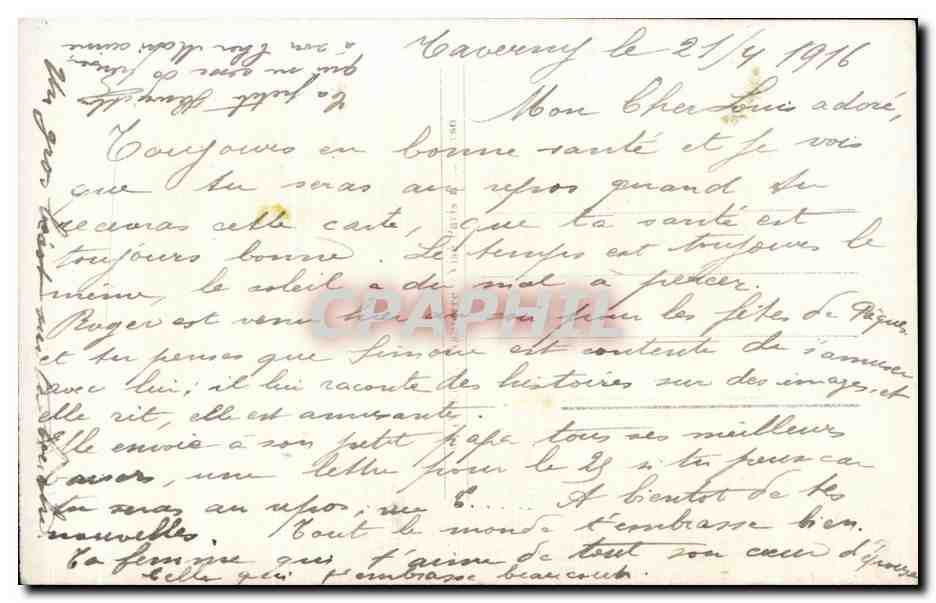 Taverny le 21/4 1916
Mon Cher Louis adoré,
Toujours en bonne santé et je vois
que tu seras au repos quand tu
recevras cette carte, que ta santé est
toujours bonne. Le temps est toujours le
même, le soleil a du mal à percer.
Roger est venu hier au soir pour les fêtes de Pâques
et tu penses que Simone est contente de s'amuser
avec lui; il lui raconte des histoires sur des images, et
elle rit, elle est amusante.
Elle envoie à son petit papa tous ses meilleurs
baisers, une lettre pour le 25 si tu peux car
tu seras au repos,
A bientôt de tes
nouvelles. Tout le monde t'embrasse bien.
Ta femme qui t'aime de tout son cœur d'épouse
Celle qui t'embrasse beaucoup.
Un gros
Ta petite
qui
à son cher
CPAPHIL